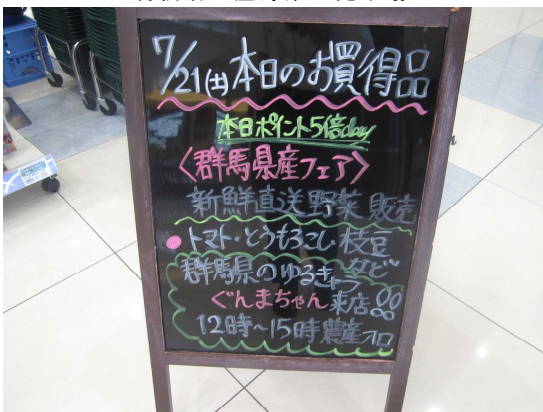 7/21(土)本日のお買得品
本日ポイント5倍day
〈群馬県産フェア〉
新鮮直送野菜販売
●トマト・とうもろこし枝豆
など
群馬県のゆるきゃら
ぐんまちゃん来店!!
12時～15時農産フロ